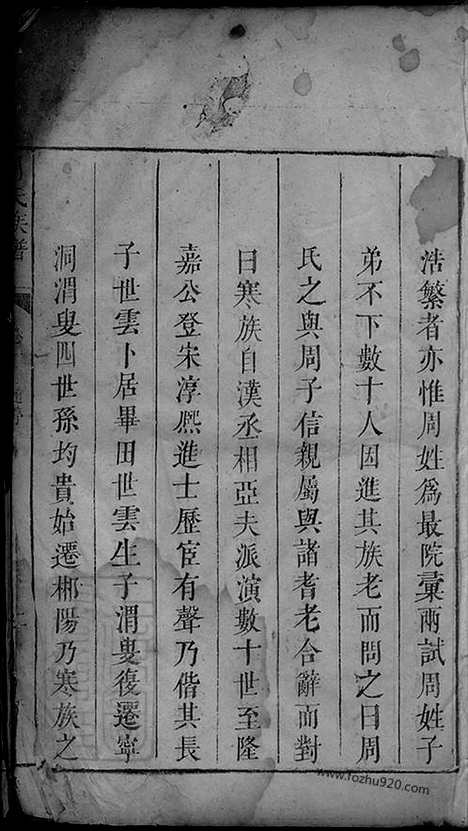 浩繁者亦惟周姓爲最院彚兩試周姓子
弟不下數十人因進其族老而問之曰周
氏之與周子信親屬與諸耆老合辭而對
曰寒族自漢丞相亞夫派演數十世至隆
嘉公登宋淳熈進士歷宦有聲乃偕其長
子世雲卜居畢田世雲生子渭叟復遷寧
洞渭叟四世孫均貴始遷郴陽乃寒族之
氏族譜
www.fozhu920.com